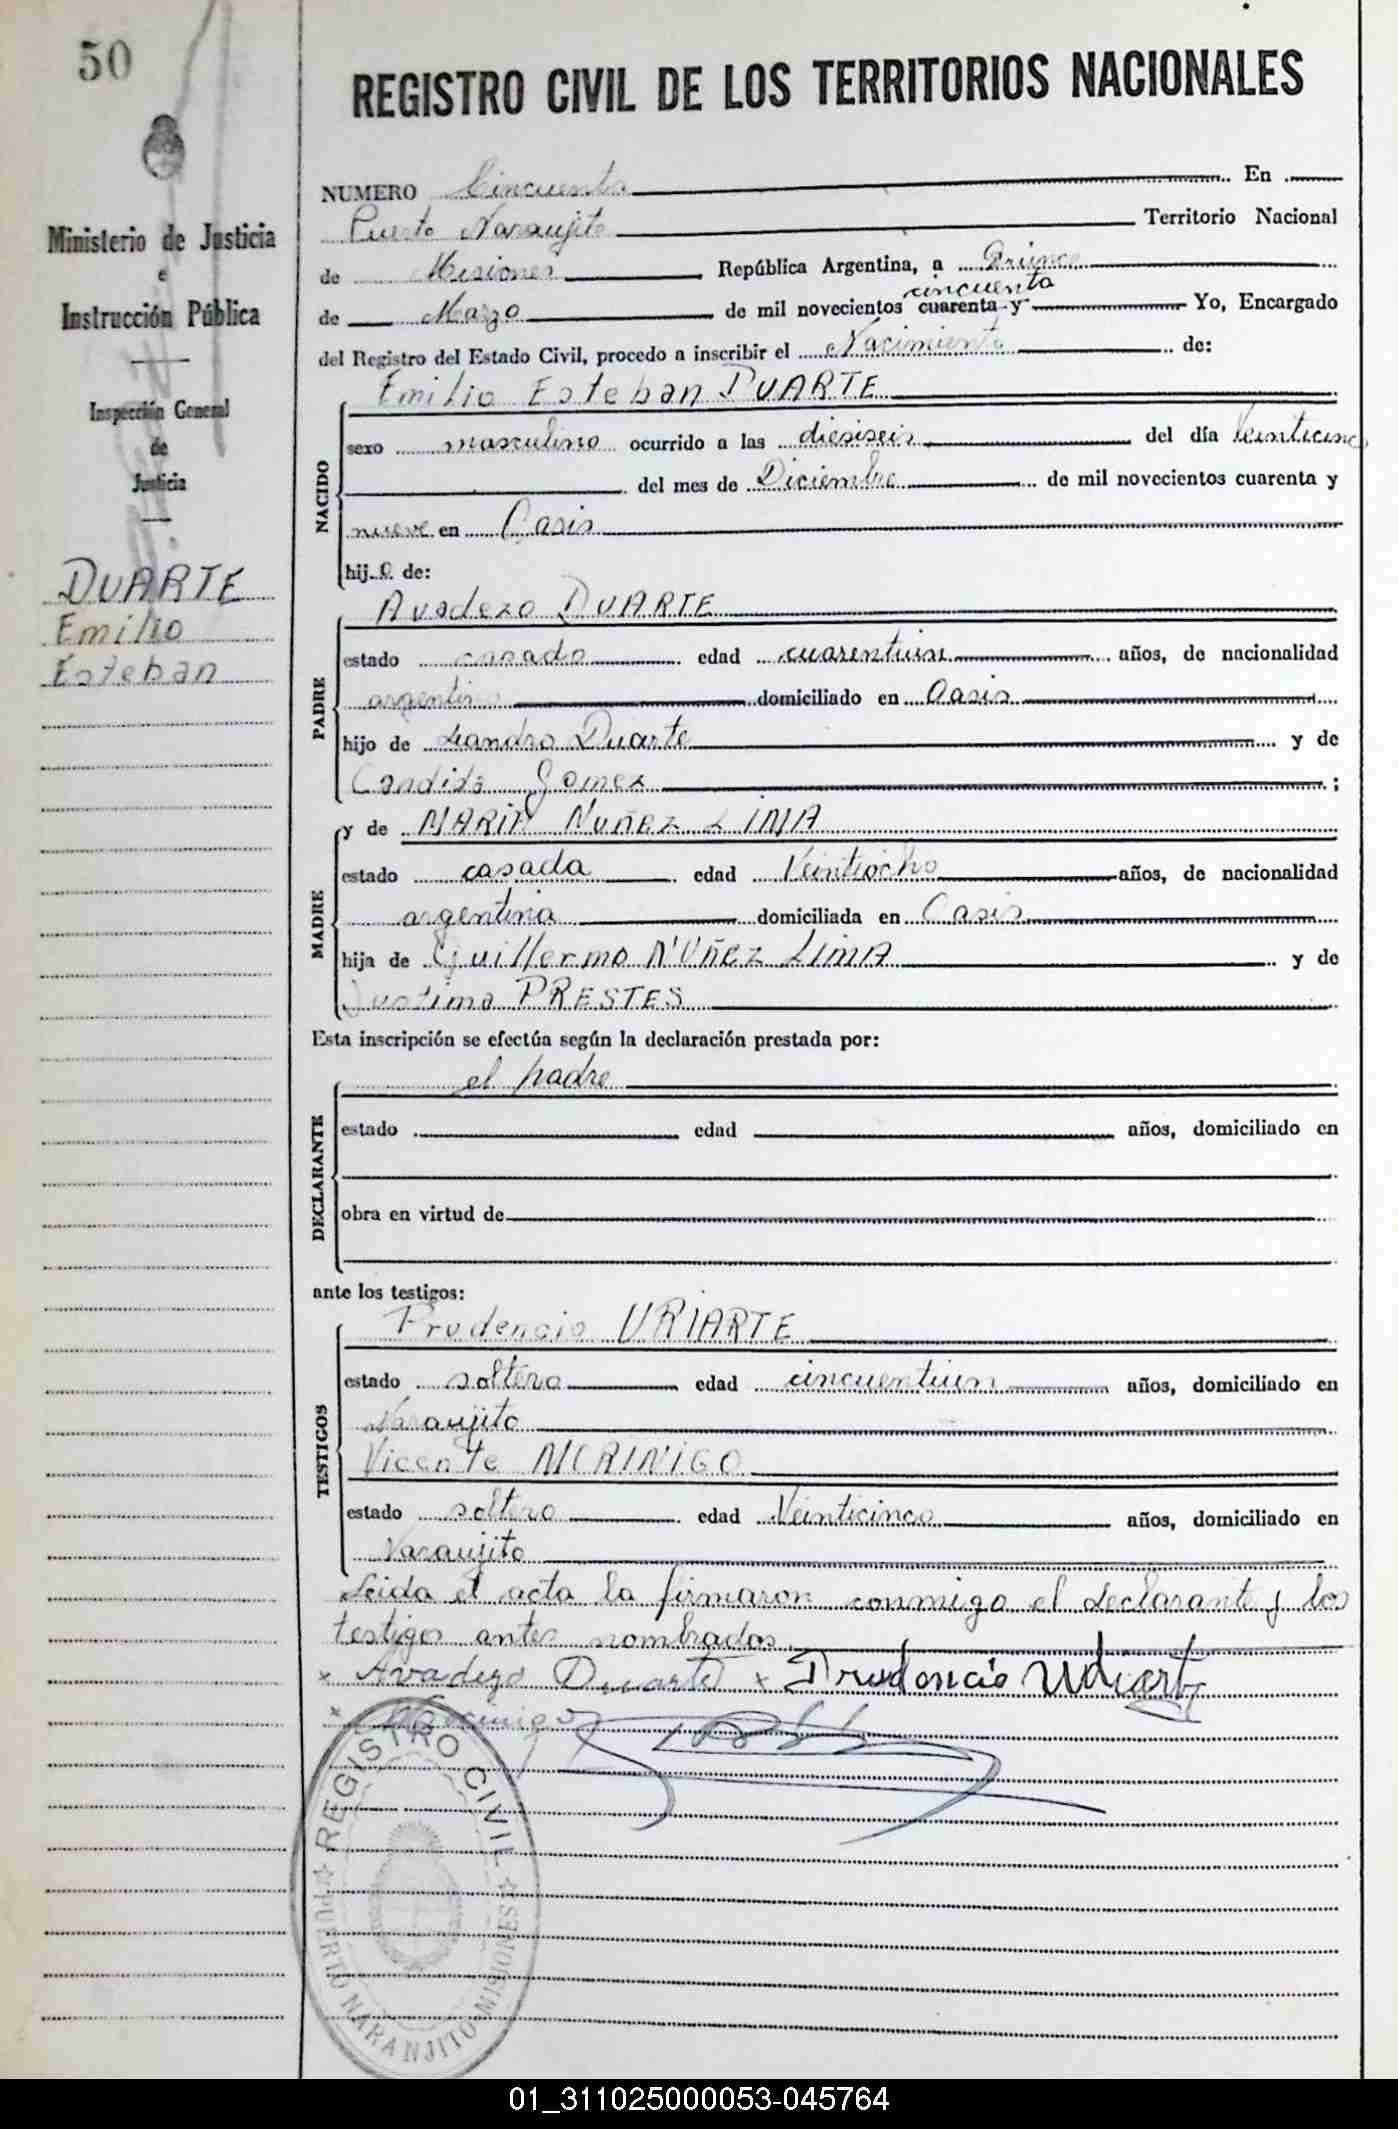 50
REGISTRO CIVIL DE LOS TERRITORIOS NACIONALES
Ministerio de Justicia
e
Instrucción Pública
Inspección General
de
Justicia
DUARTE
Emilio
Esteban
NUMERO Cincuenta En
Puerto Naranjito Territorio Nacional
de Misiones República Argentina, a Quince
cincuenta
de Marzo de mil novecientos cuarenta y Yo, Encargado
del Registro del Estado Civil, procedo a inscribir el Nacimiento de:
Emilio Esteban DUARTE
NACIDO
sexo masculino ocurrido a las dieciseis del día Veinticinco
del mes de Diciembre de mil novecientos cuarenta y
nueve en Oasis
hij o de:
PADRE
Avadezo DUARTE
estado casado edad cuarentiun años, de nacionalidad
argentino domiciliado en Oasis
hijo de Leandro Duarte y de
Candida Gomez ;
MADRE
y de MARIA NUÑEZ LIMA
estado casada edad Veintiocho años, de nacionalidad
argentina domiciliada en Oasis
hija de Guillermo NUÑEZ LIMA y de
Justima PRESTES
Esta inscripción se efectúa según la declaración prestada por:
DECLARANTE
el padre
estado edad años, domiciliado en
obra en virtud de
ante los testigos:
TESTIGOS
Prudencio URIARTE
estado soltero edad cincuentiun años, domiciliado en
Naranjito
Vicente MORINIGO
estado soltero edad Veinticinco años, domiciliado en
Naranjito
Leida el acta la firmaron conmigo el declarante y los
testigos antes nombrados.
x Avadezo Duarte x Prudencio Udiarte
x Morinigo
REGISTRO CIVIL
PUERTO NARANJITO MISIONES
01_311025000053-045764